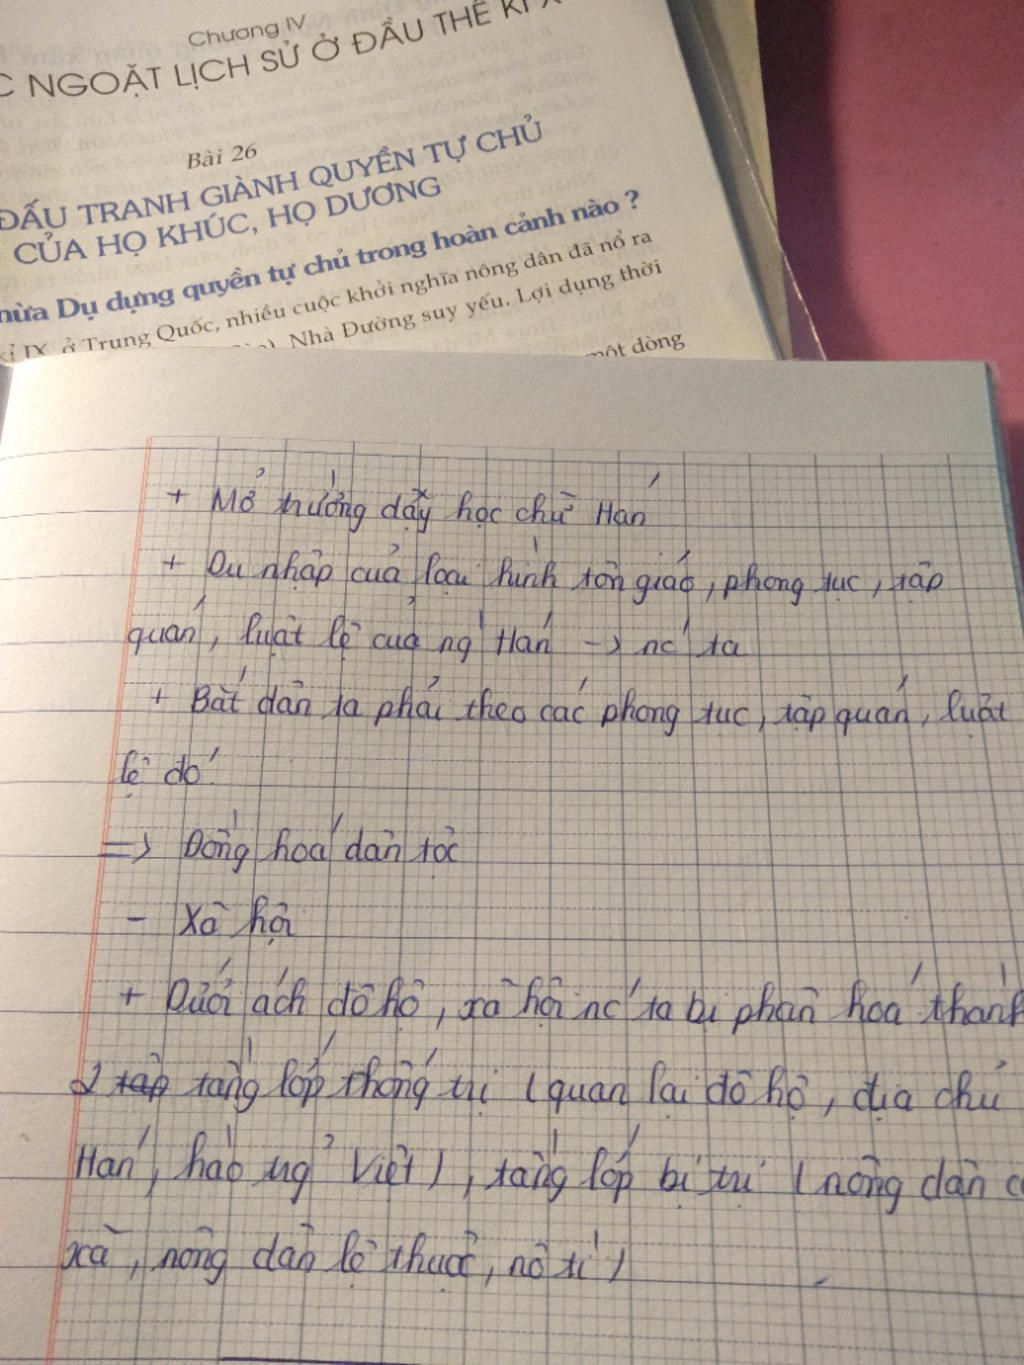 Chương IV
C NGOẶT LỊCH SỬ Ở ĐẦU THẾ KỈ X
Bài 26
ĐẤU TRANH GIÀNH QUYỀN TỰ CHỦ
CỦA HỌ KHÚC, HỌ DƯƠNG
hừa Dụ dựng quyền tự chủ trong hoàn cảnh nào ?
kỉ IX, ở Trung Quốc, nhiều cuộc khởi nghĩa nông dân đã nổ ra
Nhà Đường suy yếu. Lợi dụng thời
một dòng
+ Mở trường dạy học chữ Hán
+ Du nhập của loại hình tôn giáo, phong tục, tập
quán, luật lệ của ng' Hán -> nc' ta
+ Bắt dân ta phải theo các phong tục, tập quán, luật
lệ đó
=> Đồng hoá dân tộc
- Xã hội
+ Dưới ách đô hộ, xã hội nc' ta bị phân hoá thành
2 tập tầng lớp thống trị (quan lại đô hộ, địa chủ
Hán, hào ng' Việt), tầng lớp bị trị (nông dân c
xã, nông dân lệ thuộc, nô tì)